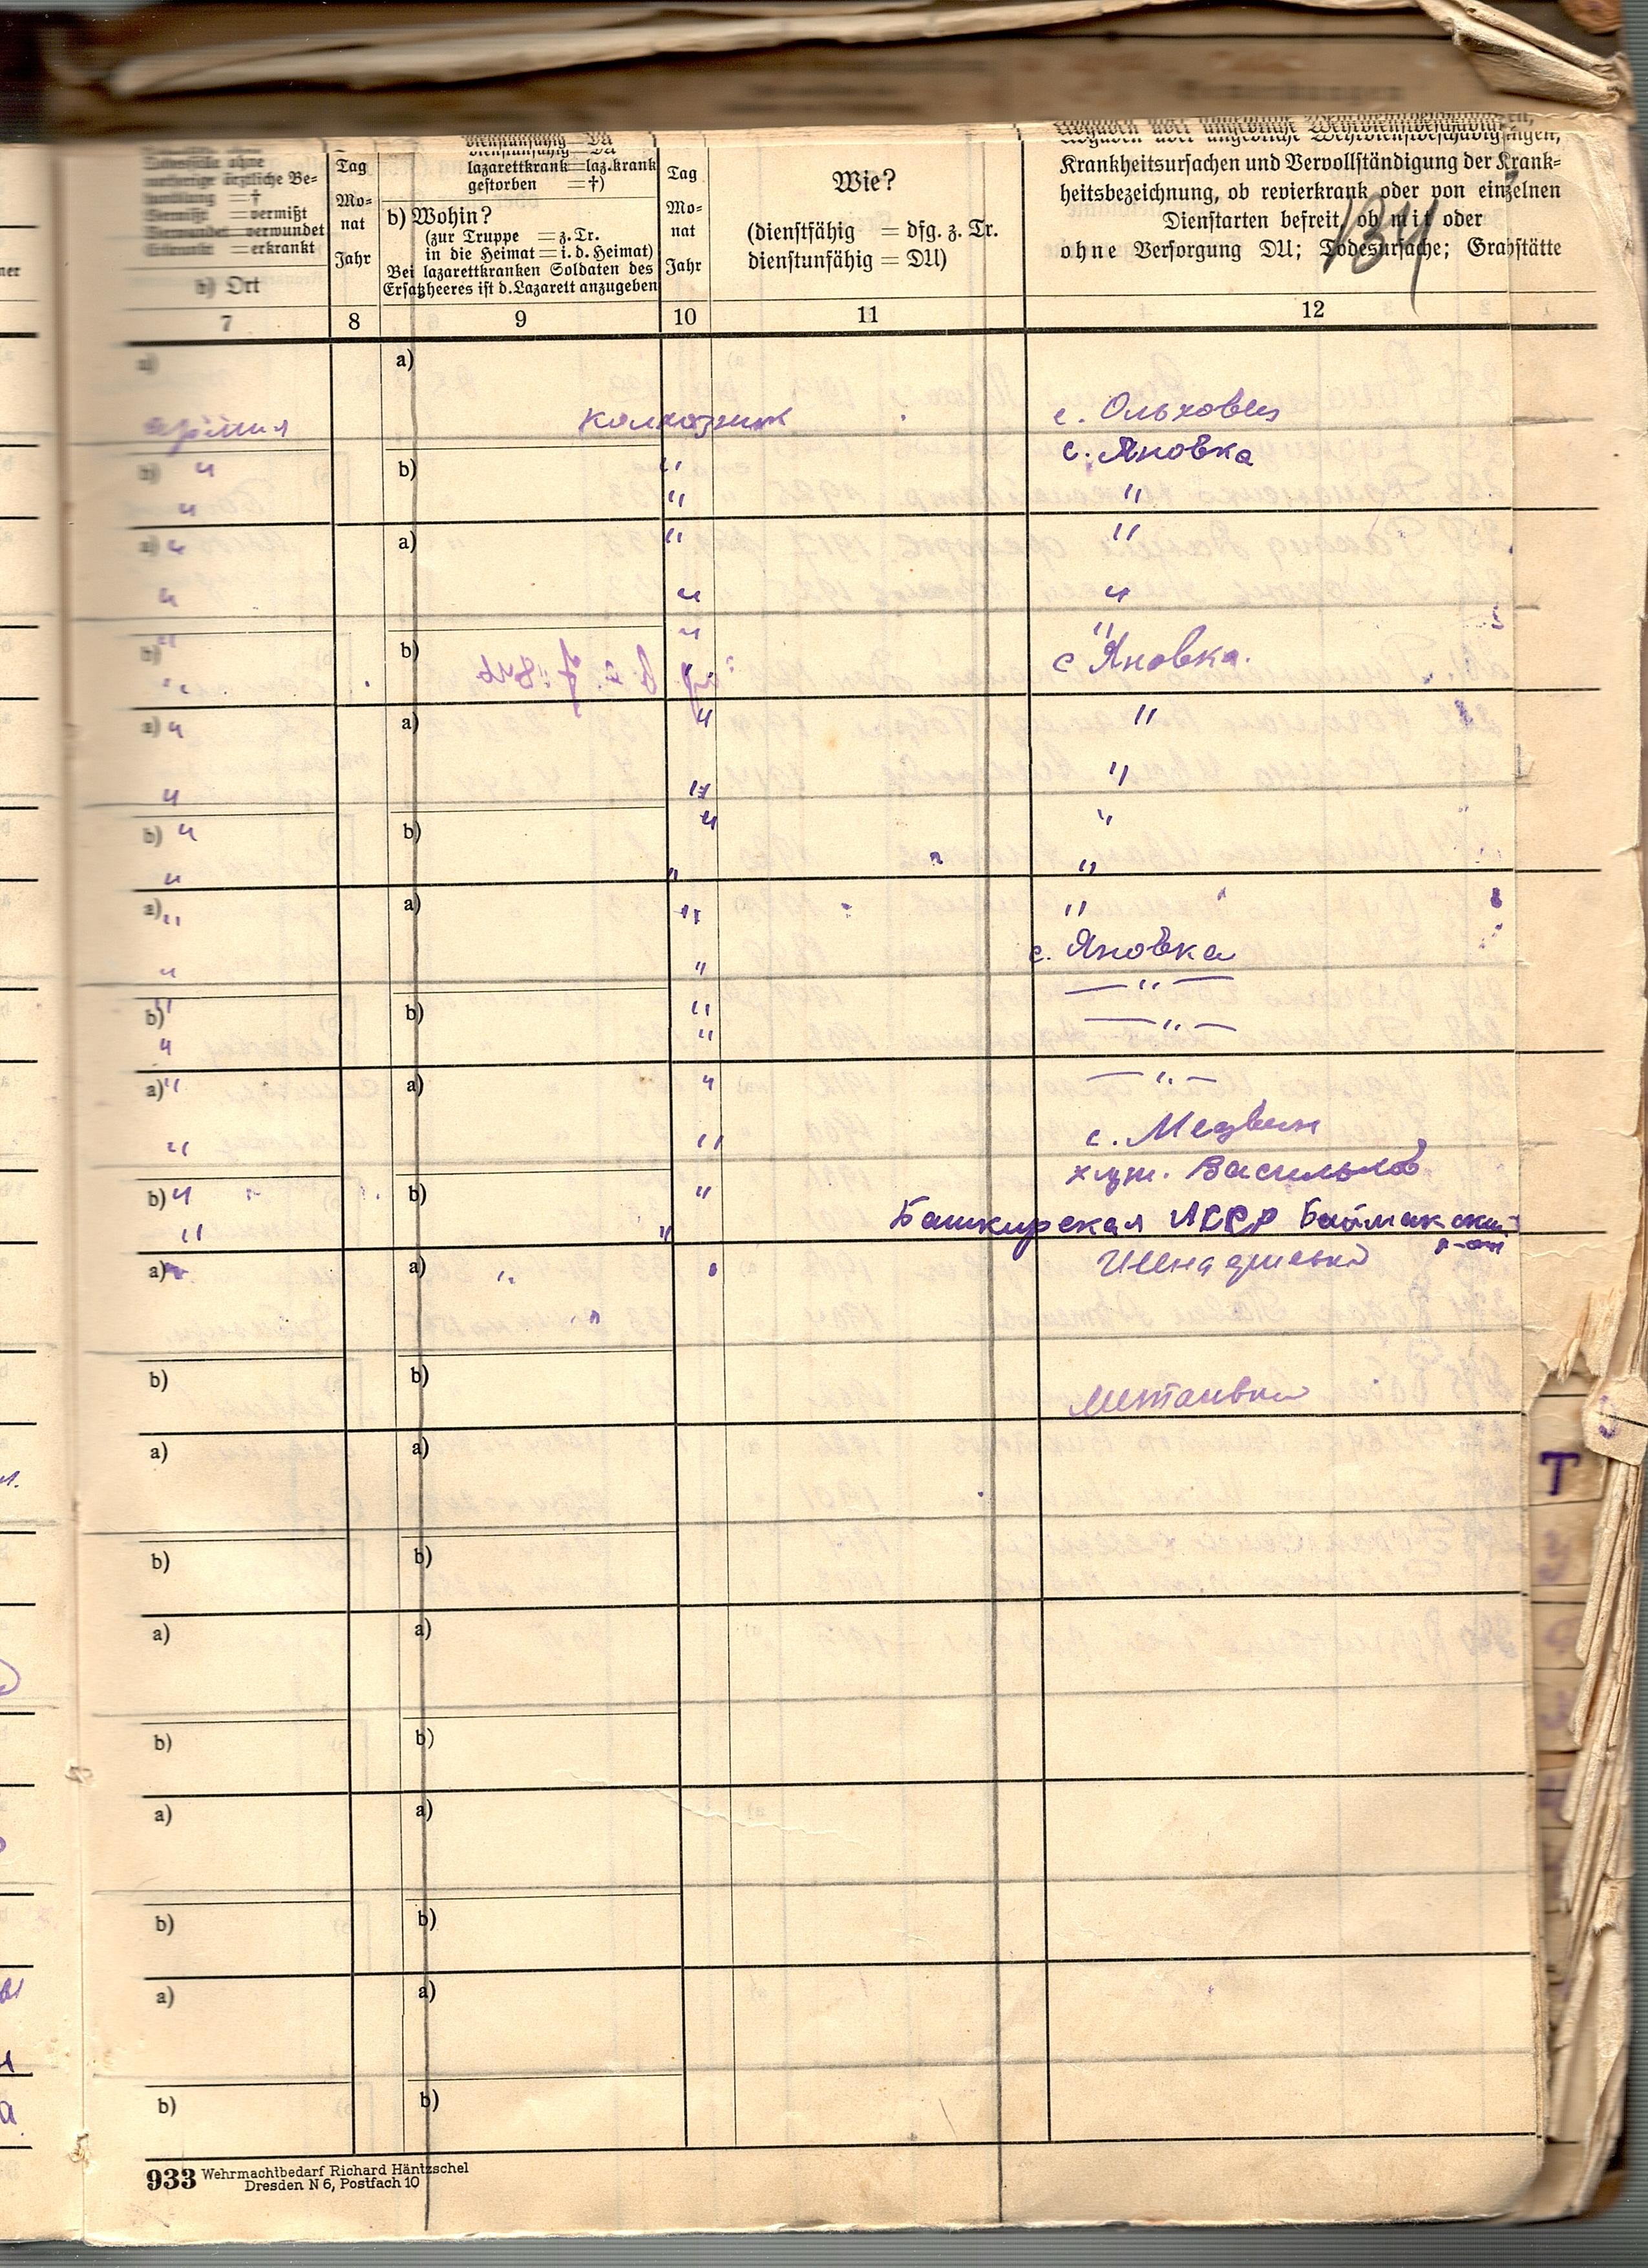 134
Todesfälle ohne
vorherige ärztliche Be-
handlung = †
Vermißt = vermißt
Verwundet = verwundet
Erkrankt = erkrankt
b) Ort
Tag
Mo-
nat
Jahr
dienstunfähig = DU
lazarettkrank = laz.krank
gestorben = †)
b) Wohin?
(zur Truppe = z. Tr.
in die Heimat = i. d. Heimat)
Bei lazarettkranken Soldaten des
Ersatzheeres ist d. Lazarett anzugeben
Tag
Mo-
nat
Jahr
Wie?
(dienstfähig = dfg. z. Tr.
dienstunfähig = DU)
Angaben über angebliche Wehrdienstbeschädigungen,
Krankheitsursachen und Vervollständigung der Krank-
heitsbezeichnung, ob revierkrank oder von einzelnen
Dienstarten befreit, ob mit oder
ohne Versorgung DU; Todesursache; Grabstätte
7 8 9 10 11 12
a) a)
колхозник с. Ольховец
b) " b) " с. Яновка
" " "
a) " a) " "
" " "
b) " b) " "
" с Яновка.
a) " a) " "
" " "
b) " b) " "
" " "
a) " a) " "
" " с. Яновка
b) " b) " — " —
" " — " —
a) " a) " — " —
" " с. Медвин
b) " b) " хут. Васильков
" " Башкирская АССР Баймакский
р-он
a) a) "
b) b)
a) a)
b) b)
a) a)
b) b)
a) a)
b) b)
a) a)
b) b)
933 Wehrmachtbedarf Richard Häntzschel
Dresden N 6, Postfach 10
Т
У